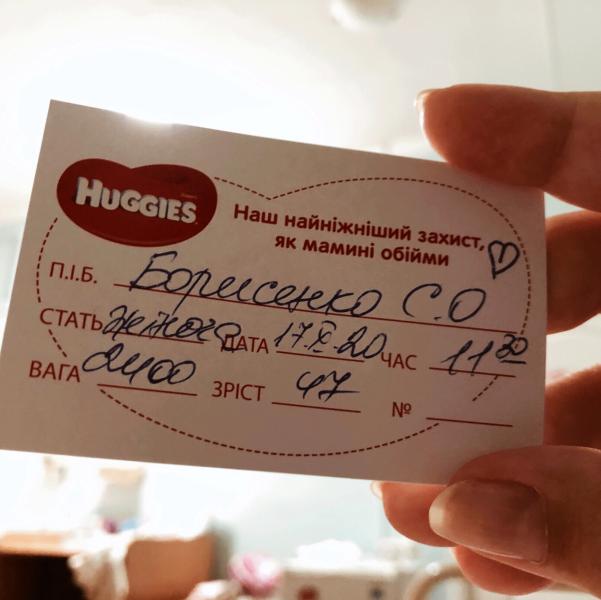 HUGGIES
Наш найніжніший захист,
як мамині обійми
П.І.Б. Борисенко С.О
СТАТЬ жіноча ДАТА 17.IX.20 ЧАС 11 30
ВАГА 2400 ЗРІСТ 47 №